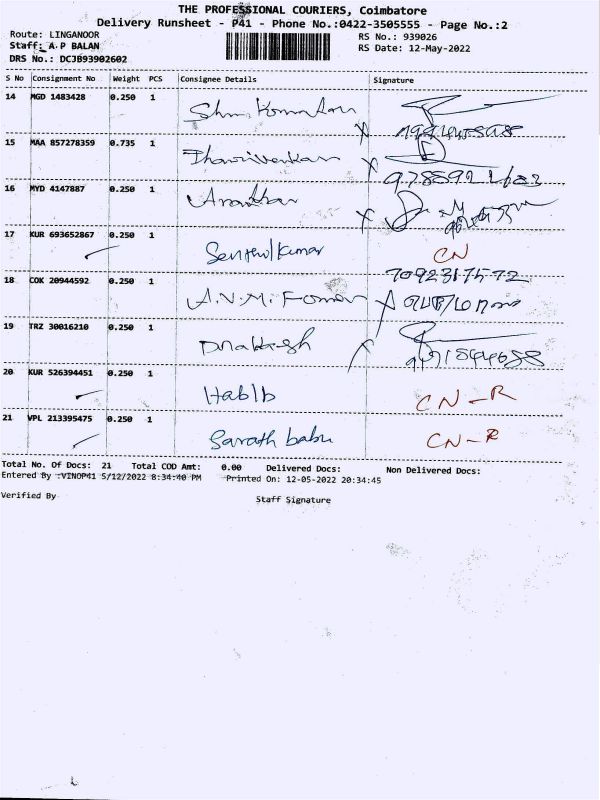 THE PROFESSIONAL COURIERS, Coimbatore
Delivery Runsheet - P41 - Phone No.:0422-3505555 - Page No.:2
Route: LINGANOOR RS No.: 939026
Staff: A.P BALAN RS Date: 12-May-2022
DRS No.: DCJB93902602
S No Consignment No Weight PCS Consignee Details Signature
14 MGD 1483428 0.250 1
15 MAA 857278359 0.735 1
16 MYD 4147887 0.250 1
17 KUR 693652867 0.250 1 Senthil Kumar CN
7092317572
18 COK 20944592 0.250 1 A.V.M.
19 TRZ 30016210 0.250 1
20 KUR 526394451 0.250 1 Habib CN-R
21 VPL 213395475 0.250 1 Sarath babu CN-R
Total No. Of Docs: 21 Total COD Amt: 0.00 Delivered Docs: Non Delivered Docs:
Entered By :VINOP41 5/12/2022 8:34:40 PM Printed On: 12-05-2022 20:34:45
Verified By Staff Signature